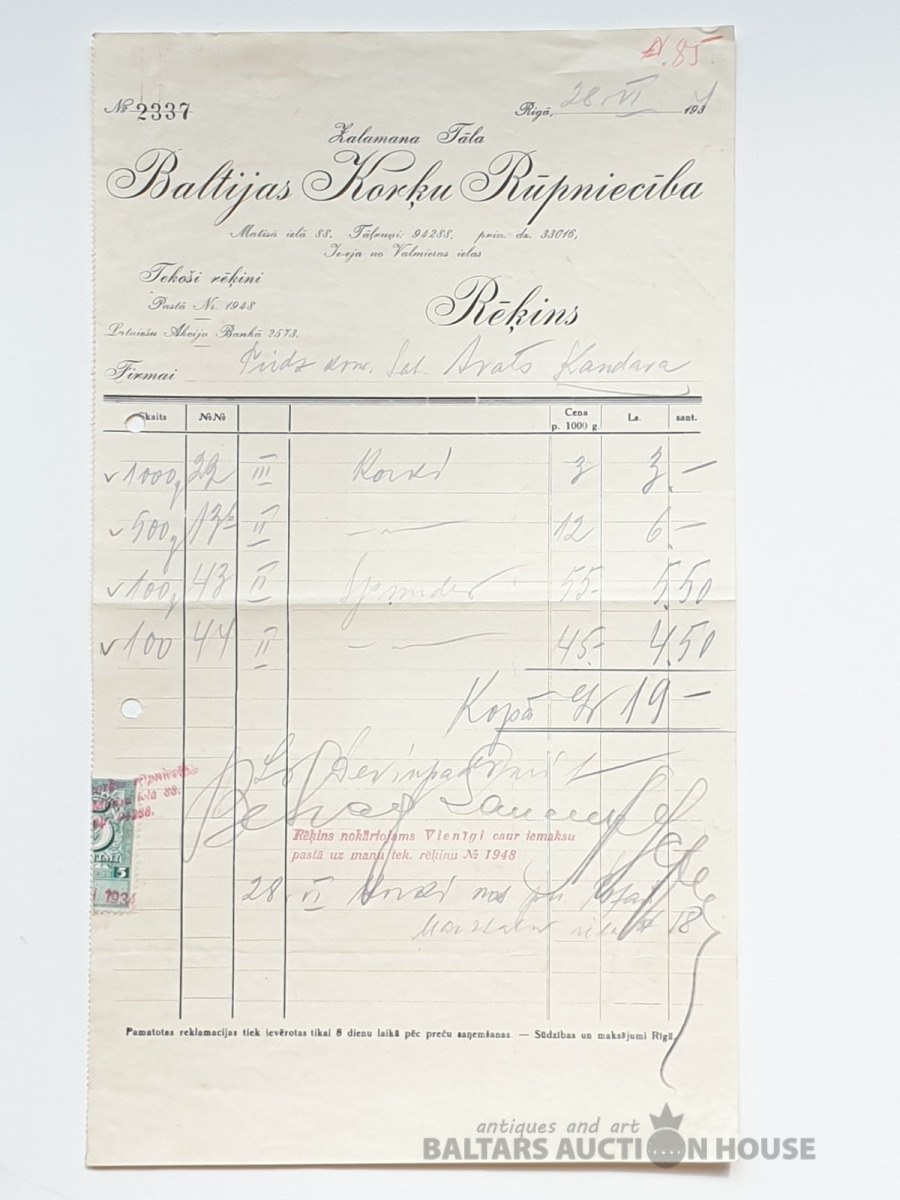 № 85.
№ 2337
Rīgā, 28 VI 1934
Zalamana Tāla
Baltijas Korķu Rūpniecība
Matīsa ielā 88. Tālruņi: 94288, priv. dz. 33016,
Ie-eja no Valmieras ielas
Tekoši rēķini
Pastā Nr. 1948
Latviešu Akciju Bankā 2573.
Rēķins
Firmai Kandava
Skaits №№ Cena p. 1000 g. Ls. sant.
1000 g 22 III Korķi 3 3.—
500 g 13 II — 12 6.—
100 g 43 II 55- 5.50
100 44 II — 45.- 4.50
Kopā Ls 19 —
Ls Deviņpadsmit
Saņēmu
ielā 88.
94288.
5
1934
Rēķins nokārtojams Vienīgi caur iemaksu
pastā uz manu tek. rēķinu № 1948
28. VI Korķi
18
Pamatotas reklamacijas tiek ievērotas tikai 8 dienu laikā pēc preču saņemšanas. — Sūdzības un maksājumi Rīgā.
antiques and art
BALTARS AUCTION HOUSE